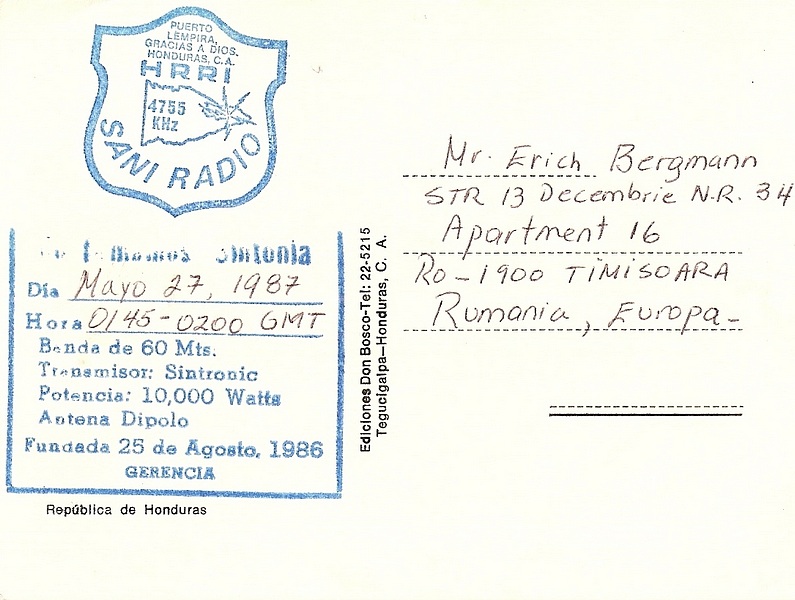 PUERTO
LEMPIRA,
GRACIAS A DIOS.
HONDURAS, C.A.
HRRI
4755
KHz
SANI RADIO
Sintonia
Día Mayo 27, 1987
Hora 0145-0200 GMT
Banda de 60 Mts.
Transmisor: Sintronic
Potencia: 10,000 Watts
Antena Dipolo
Fundada 25 de Agosto, 1986
GERENCIA
República de Honduras
Ediciones Don Bosco-Tel: 22-5215
Tegucigalpa—Honduras, C. A.
Mr. Erich Bergmann
STR 13 Decembrie N.R. 34
Apartment 16
RO-1900 TIMISOARA
Rumania, Europa-